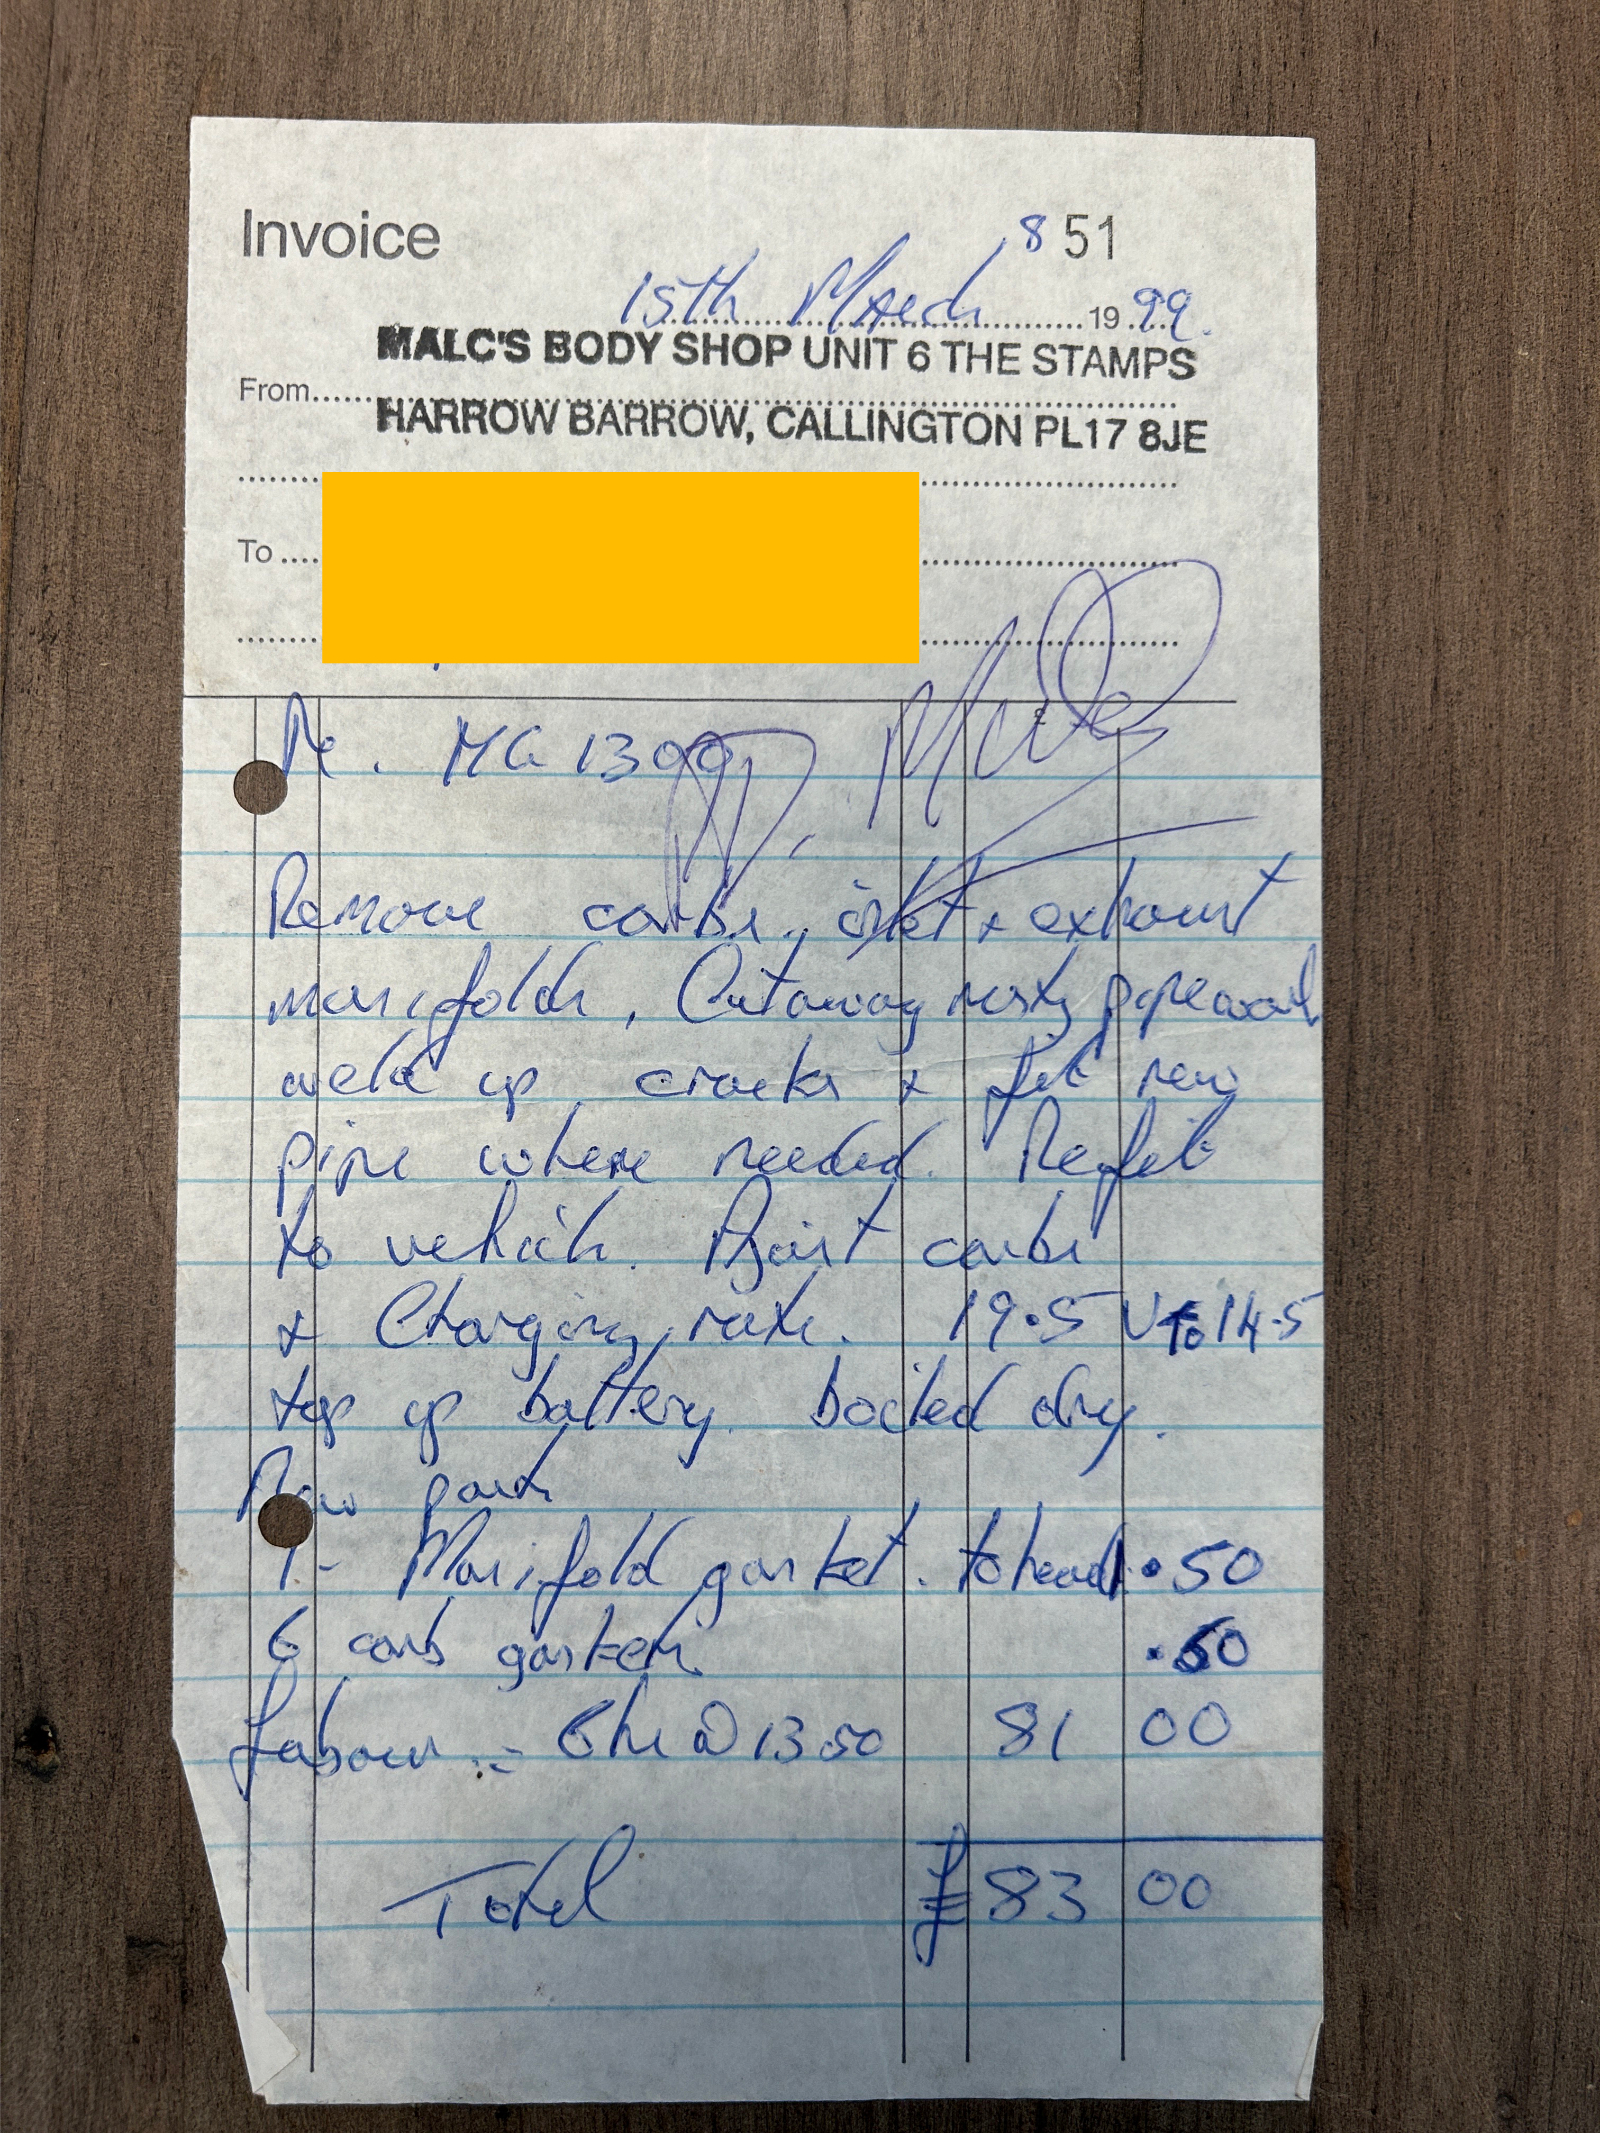 Invoice
8 51
15th March 1999.
MALC'S BODY SHOP UNIT 6 THE STAMPS
From
HARROW BARROW, CALLINGTON PL17 8JE
To
£
Re. MG 1300
Remove carbs, inlet + exhaust
manifolds, Cutaway rusty pipework
weld up cracks + fit new
pipe where needed. Refit
to vehicle. Ajust carbs
+ Charging rate. 19.5 V to 14.5
top up battery. boiled dry.
New parts
1 - Manifold gasket. to head 1.50
6 carb gaskets .50
Labour :- 6hrs @ 13 50 81 00
Total £ 83 00